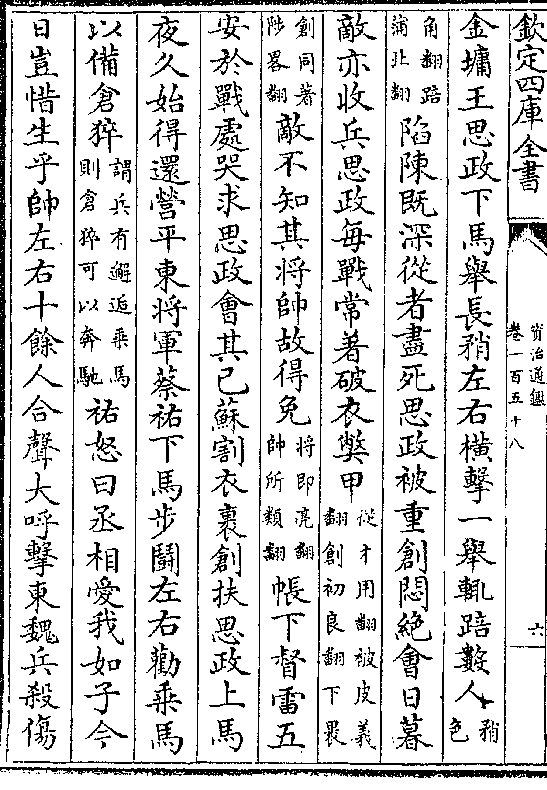 欽定四庫全書
資治通鑑
卷一百五十八
六
金墉王思政下馬舉長矟左右橫擊一舉輒踣數人矟色
角翻踣蒲北翻陷陳既深從者盡死思政被重創悶絶會日暮
敵亦收兵思政每戰常著破衣獘甲從才用翻被皮義翻創初良翻下裹
創同著陟畧翻敵不知其将帥故得免将即亮翻帥所類翻帳下督雷五
安於戰處哭求思政會其已蘇割衣裹創扶思政上馬
夜久始得還營平東将軍蔡祐下馬步鬬左右勸乘馬
以備倉猝謂兵有邂逅乘馬則倉猝可以奔馳祐怒曰丞相愛我如子今
日豈惜生乎帥左右十餘人合聲大呼擊東魏兵殺傷